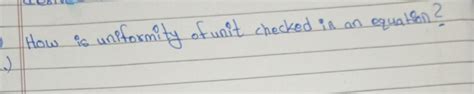 How is uniformity of unit checked in an equation?